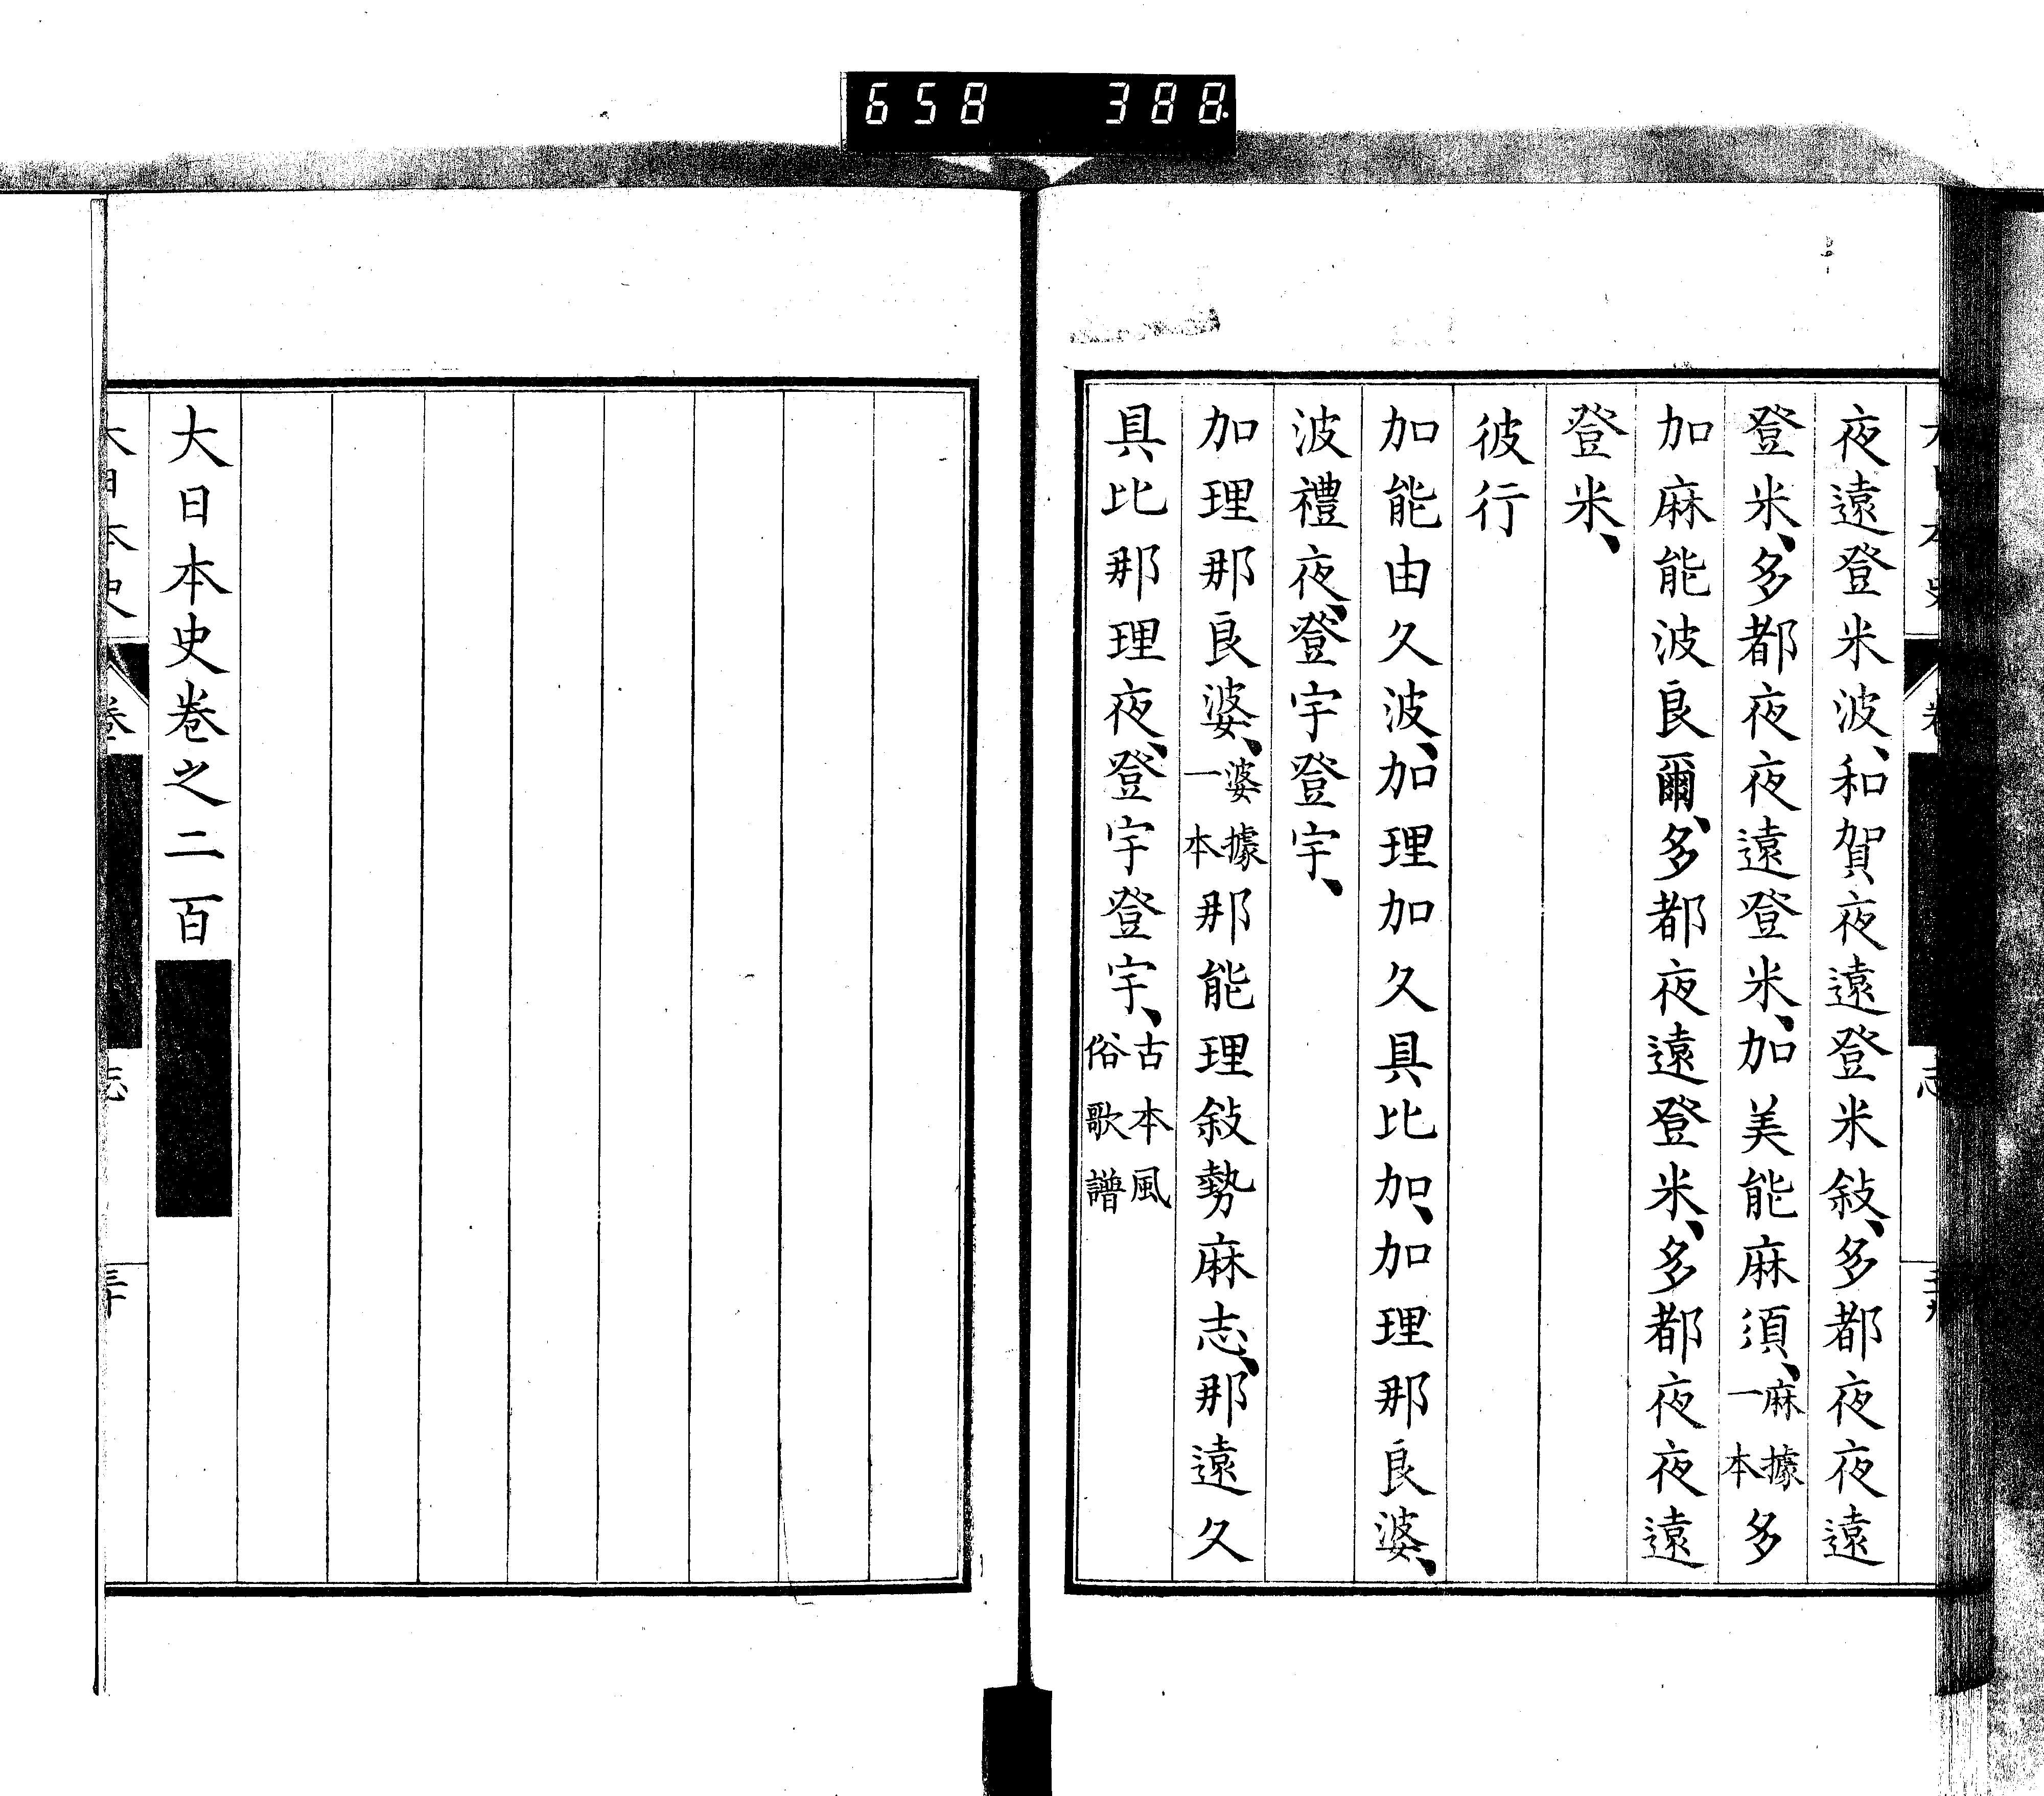 658 388.
夜遠登米波、和賀夜遠登米敍、多都夜夜遠
登米、多都夜夜遠登米、加美能麻須、麻據一本多
加麻能波良爾、多都夜遠登米、多都夜夜遠
登米、
彼行
加能由久波、加理加久具比加、加理那良婆、
波禮夜、登宇登宇、
加理那良婆、婆據一本那能理敍勢麻志、那遠久
具比那理夜、登宇登宇、古本風俗歌譜
大日本史卷之二百
大日本史 卷 志 三十